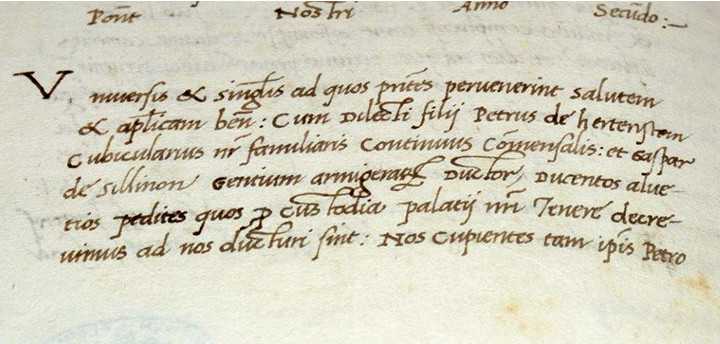 Pont Nostri Anno Secudo:-
Vniuersis & singlis ad quos prntes peruenerint salutem
& aplicam ben: Cum Dilecti filij Petrus de hertenstein
Cubicularius nr familiaris Continuus Comensalis: et Gaspar
de Sillinon Gentium armigerar Ductor, Ducentos alue-
tios pedites quos p Custodia palatij nri Tenere decre-
uimus ad nos ducturi sint: Nos Cupientes tam ipis Petro